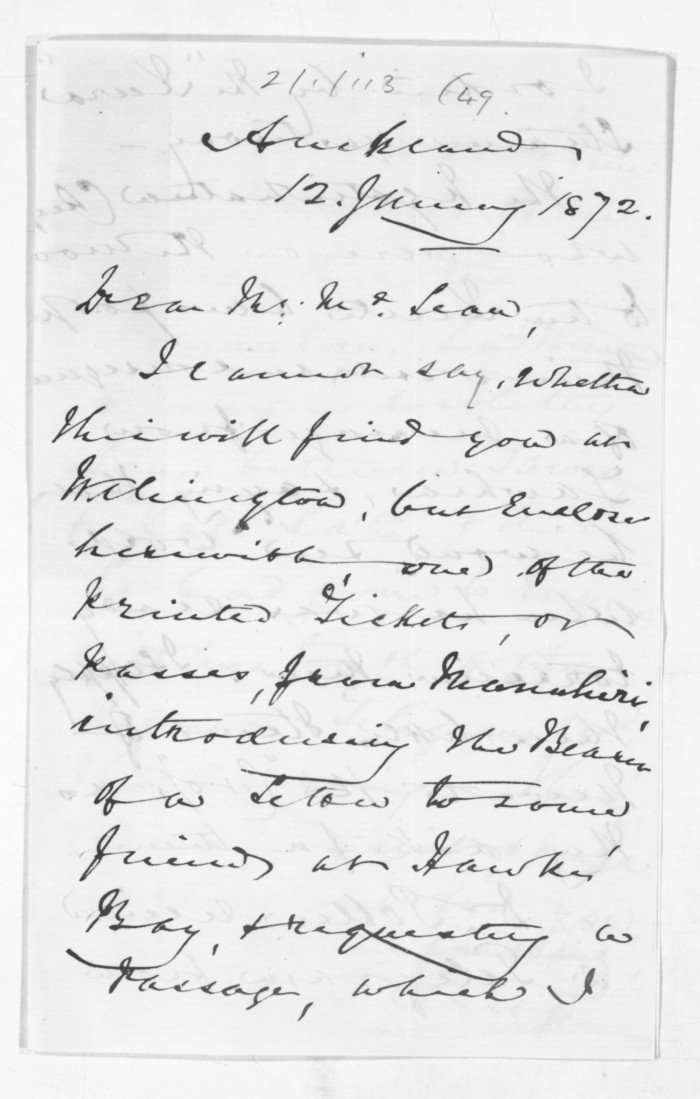 2/1/113 (49
Auckland
12. January 1872.
Dear Mr. McLean,
I cannot say, whether
this will find you at
Wellington, but Enclose
herewith one of the
printed Tickets, or
passes, from Manuhiri,
introducing the Bearer
of a Letter to some
friends at Hawke's
Bay, & requesting a
Passage, which I